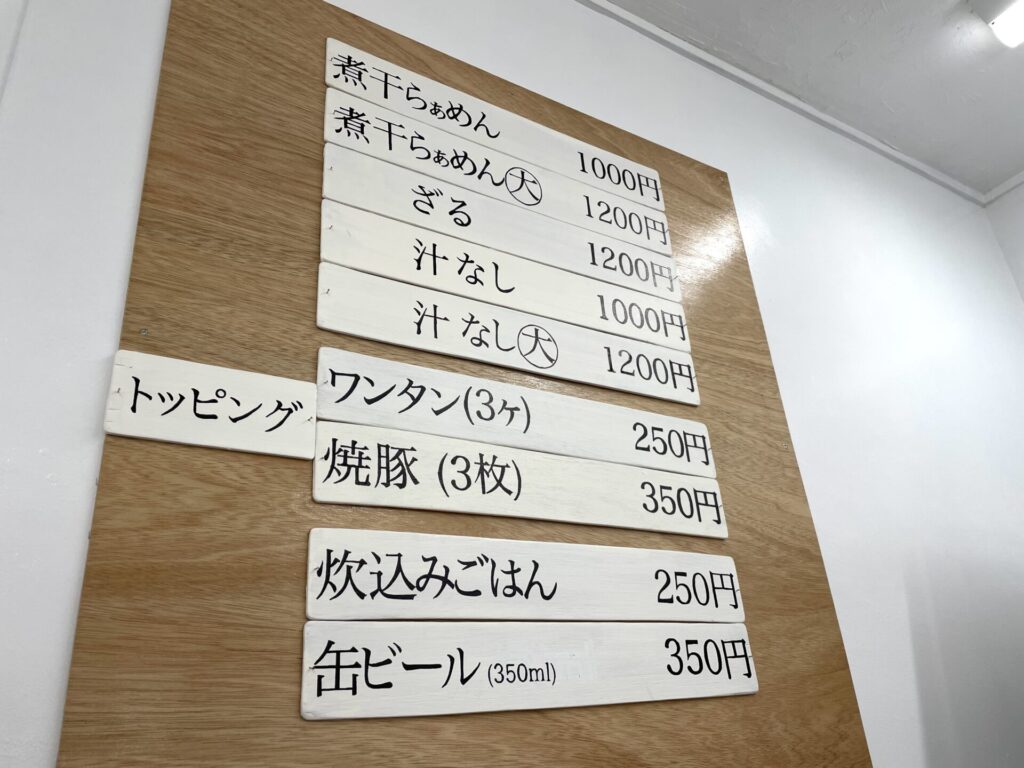 煮干らぁめん 1000円
煮干らぁめん㊅ 1200円
ざる 1200円
汁なし 1000円
汁なし大 1200円
トッピング ワンタン(3ヶ) 250円
焼豚 (3枚) 350円
炊込みごはん 250円
缶ビール (350ml) 350円